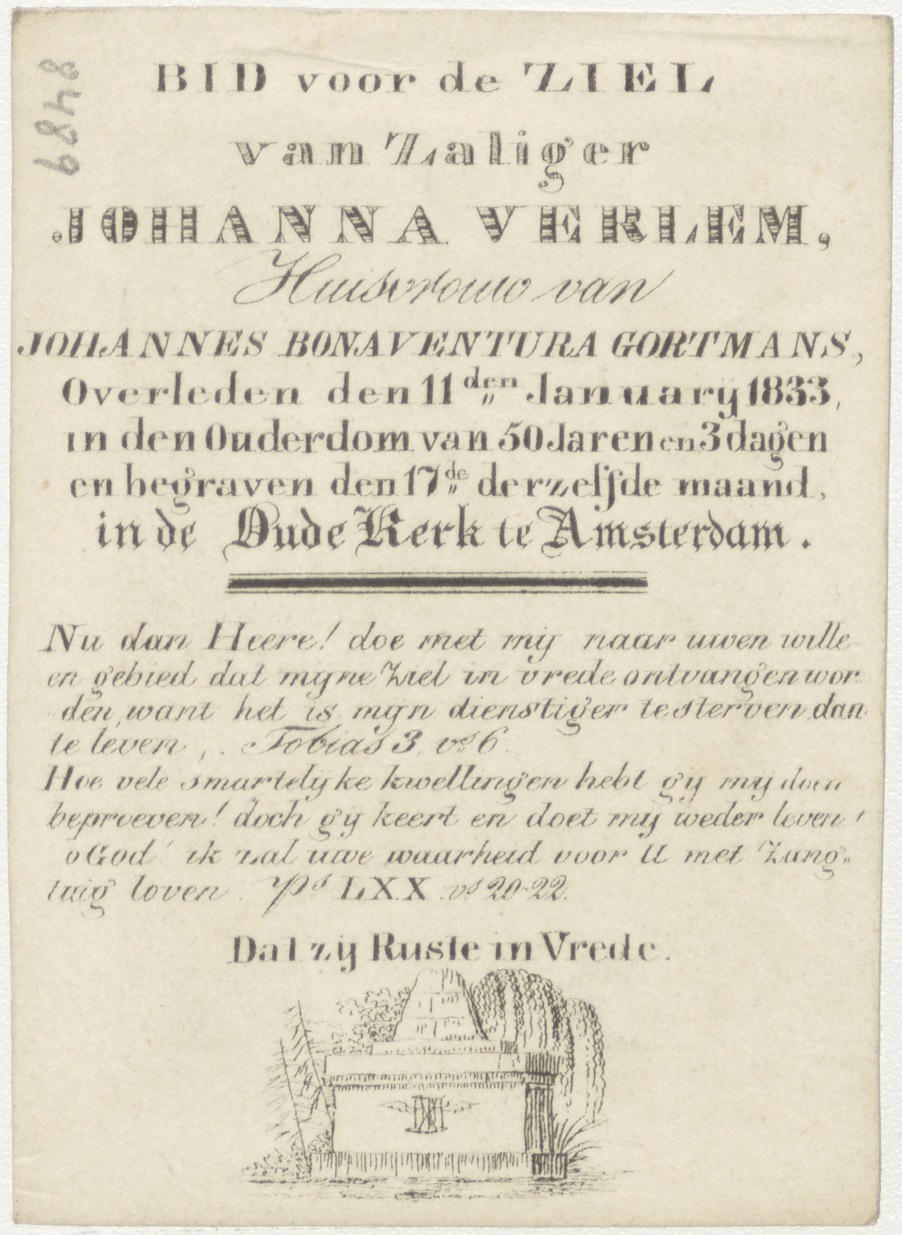 8489
BID voor de ZIEL
van Zaliger
JOHANNA VERLEM,
Huisvrouw van
JOHANNES BONAVENTURA GORTMANS,
Overleden den 11den January 1833,
in den Ouderdom van 50 Jaren en 3 dagen
en begraven den 17de derzelfde maand,
in de Oude Kerk te Amsterdam.
Nu dan Heere! doe met mij naar uwen wille
en gebied dat myne Ziel in vrede ontvangen wor
den, want het is myn dienstiger te sterven dan
te leven, Tobias 3, vs 6.
Hoe vele smartelyke kwellingen hebt gy my doen
beproeven! doch gy keert en doet my weder leven!
o God! ik zal uwe waarheid voor U met Zang„
tuig loven. Ps LXX vs 20-22.
Dat zij Ruste in Vrede.